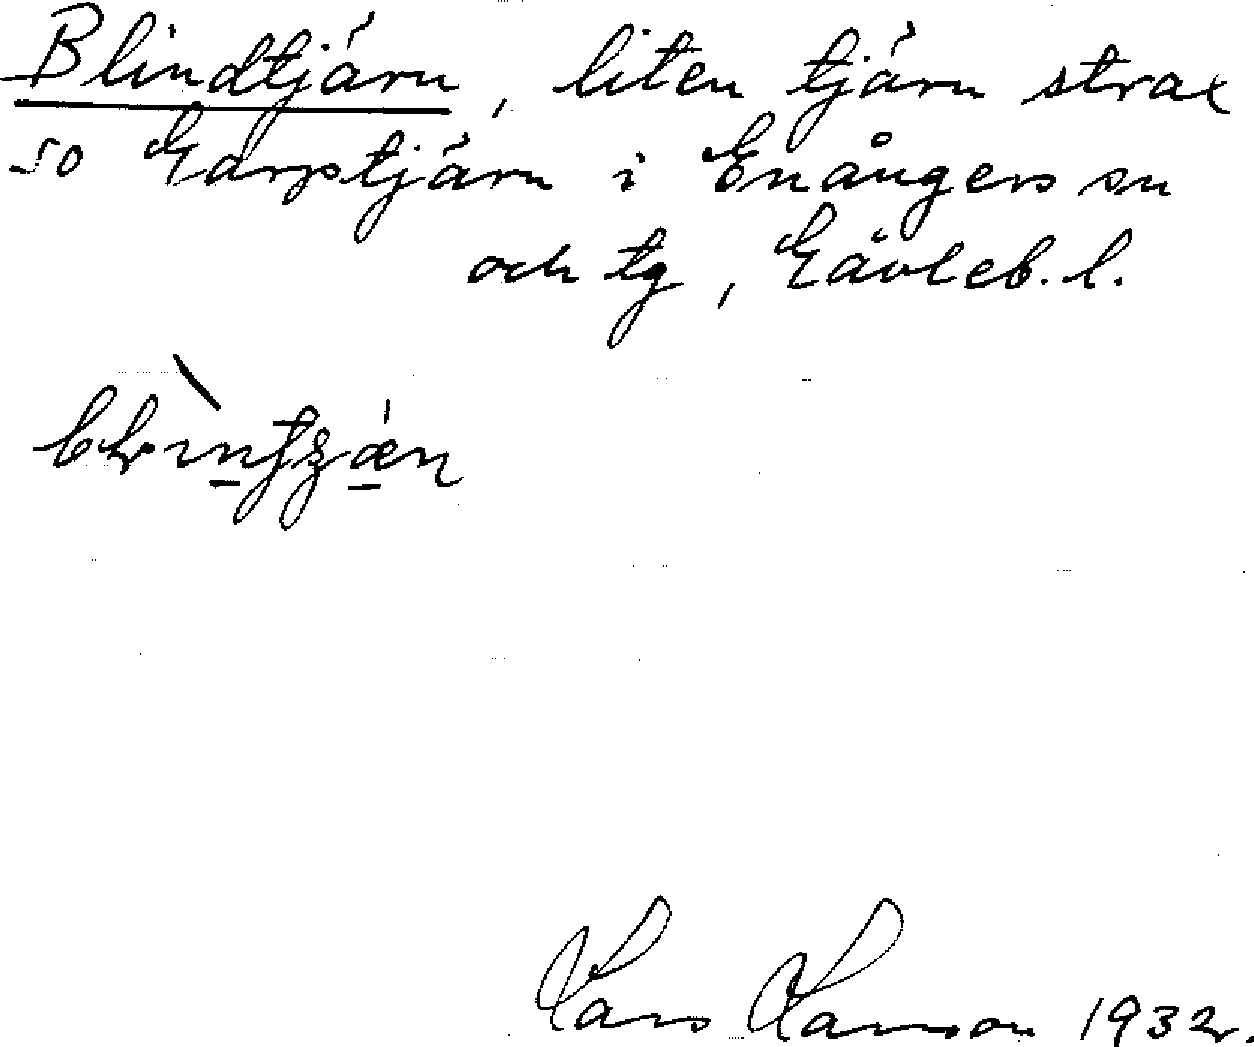 Blindtjärn, liten tjärn strax
so Garptjärn i Enångers sn
och tg, Gävleb. l.
Lars Larsson 1932.